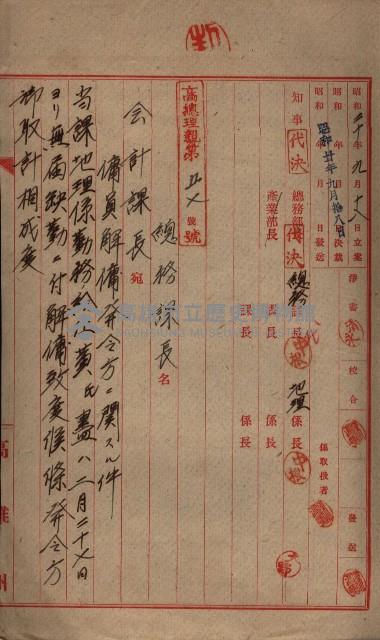 昭和二十年九月十八日立案
昭和 年 月 日決裁
昭和廿年九月拾八日
昭和 年 月 日發送
淨書
校合
發送
知事
代決
總務部長
代決
產業部長
總務課長
課長
課長
地理係長
係長
係長
係取扱者
高總理親第
號
總務課長名
会計課長宛
傭員解傭發令方ニ關スル件
当課地理係勤務給仕黃氏盡ハ二月二十七日
ヨリ無届缺勤ニ付解傭致度候條發令方
御取計相成度
高雄州
高雄市立歷史博物館